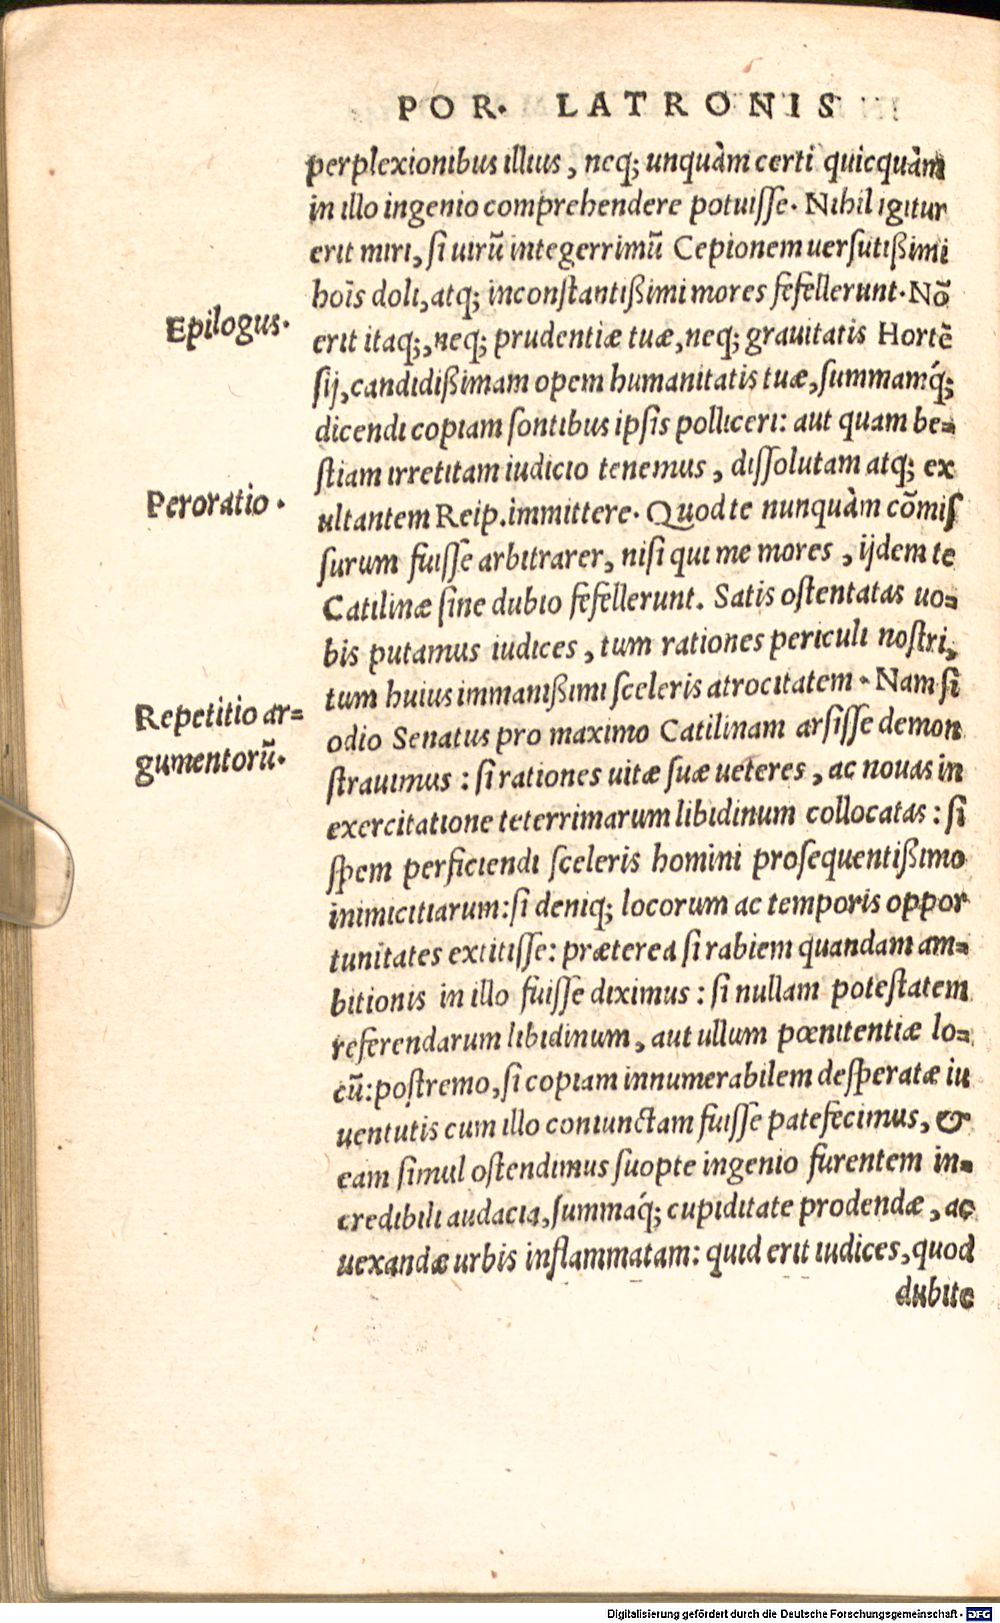 POR. LATRONIS
perplexionibus illius, neq; unquàm certi quicquàm
in illo ingenio comprehendere potuisse. Nihil igitur
erit miri, si uirũ integerrimũ Cepionem uersutißimi
hoĩs doli, atq; inconstantißimi mores fefellerunt. Nõ
Epilogus.
erit itaq;, neq; prudentiæ tuæ, neq; grauitatis Hortẽ
sij, candidißimam opem humanitatis tuæ, summamq́;
dicendi copiam sontibus ipsis polliceri: aut quam be=
stiam irretitam iudicio tenemus, dissolutam atq; ex
Peroratio.
ultantem Reip. immittere. Quod te nunquàm cõmis
surum fuisse arbitrarer, nisi qui me mores, ijdem te
Catilinæ sine dubio fefellerunt. Satis ostentatas uo=
bis putamus iudices, tum rationes periculi nostri,
tum huius immanißimi sceleris atrocitatem. Nam si
Repetitio ar=
gumentorũ.
odio Senatus pro maximo Catilinam arsisse demon
strauimus: si rationes uitæ suæ ueteres, ac nouas in
exercitatione teterrimarum libidinum collocatas: si
spem perficiendi sceleris homini prosequentißimo
inimicitiarum: si deniq; locorum ac temporis oppor
tunitates extitisse: præterea si rabiem quandam am=
bitionis in illo fuisse diximus: si nullam potestatem
referendarum libidinum, aut ullum pœnitentiæ lo=
cũ: postremo, si copiam innumerabilem desperatæ iu
uentutis cum illo coniunctam fuisse patefecimus, &
eam simul ostendimus suopte ingenio furentem in=
credibili audacia, summáq; cupiditate prodendæ, ac
uexandæ urbis inflammatam: quid erit iudices, quod
dubite
Digitalisierung gefördert durch die Deutsche Forschungsgemeinschaft - DFG